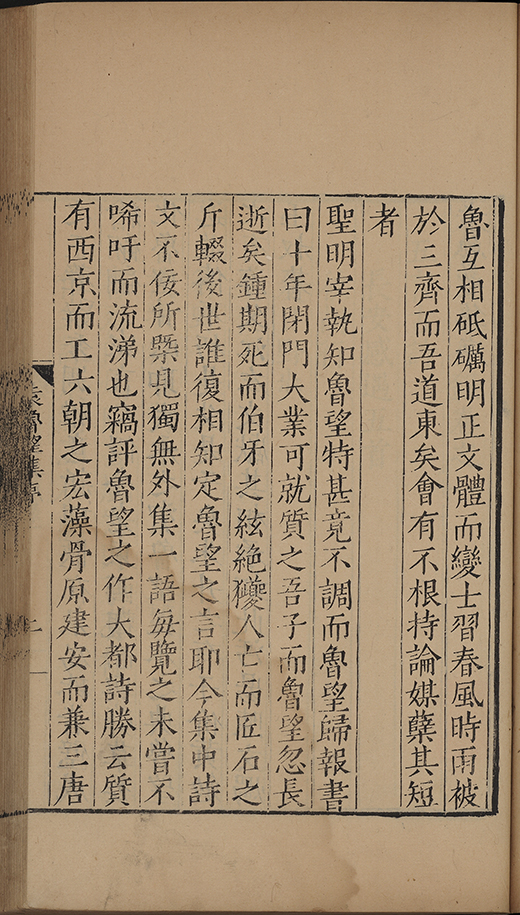 魯互相砥礪明正文體而變士習春風時雨被
於三齊而吾道東矣會有不根持論媒櫱其短
者
聖明宰執知魯望特甚竟不調而魯望歸報書
曰十年閉門大業可就質之吾子而魯望忽長
逝矣鍾期死而伯牙之絃絶獿人亡而匠石之
斤輟後世誰復相知定魯望之言耶今集中詩
文不佞所槩見獨無外集一語每覽之未嘗不
唏吁而流涕也竊評魯望之作大都詩勝云質
有西京而工六朝之宏藻骨原建安而兼三唐
袁魯望集序